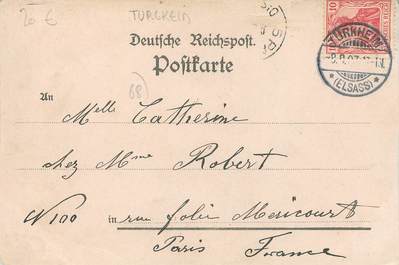 20 €
TURCKEIM
TÜRKHEIM
(ELSASS)
10
Deutsche Reichspost.
Postkarte
68
An
Melle Catherine
chez Mme Robert
N 100 in rue folie Mericourt
Paris France